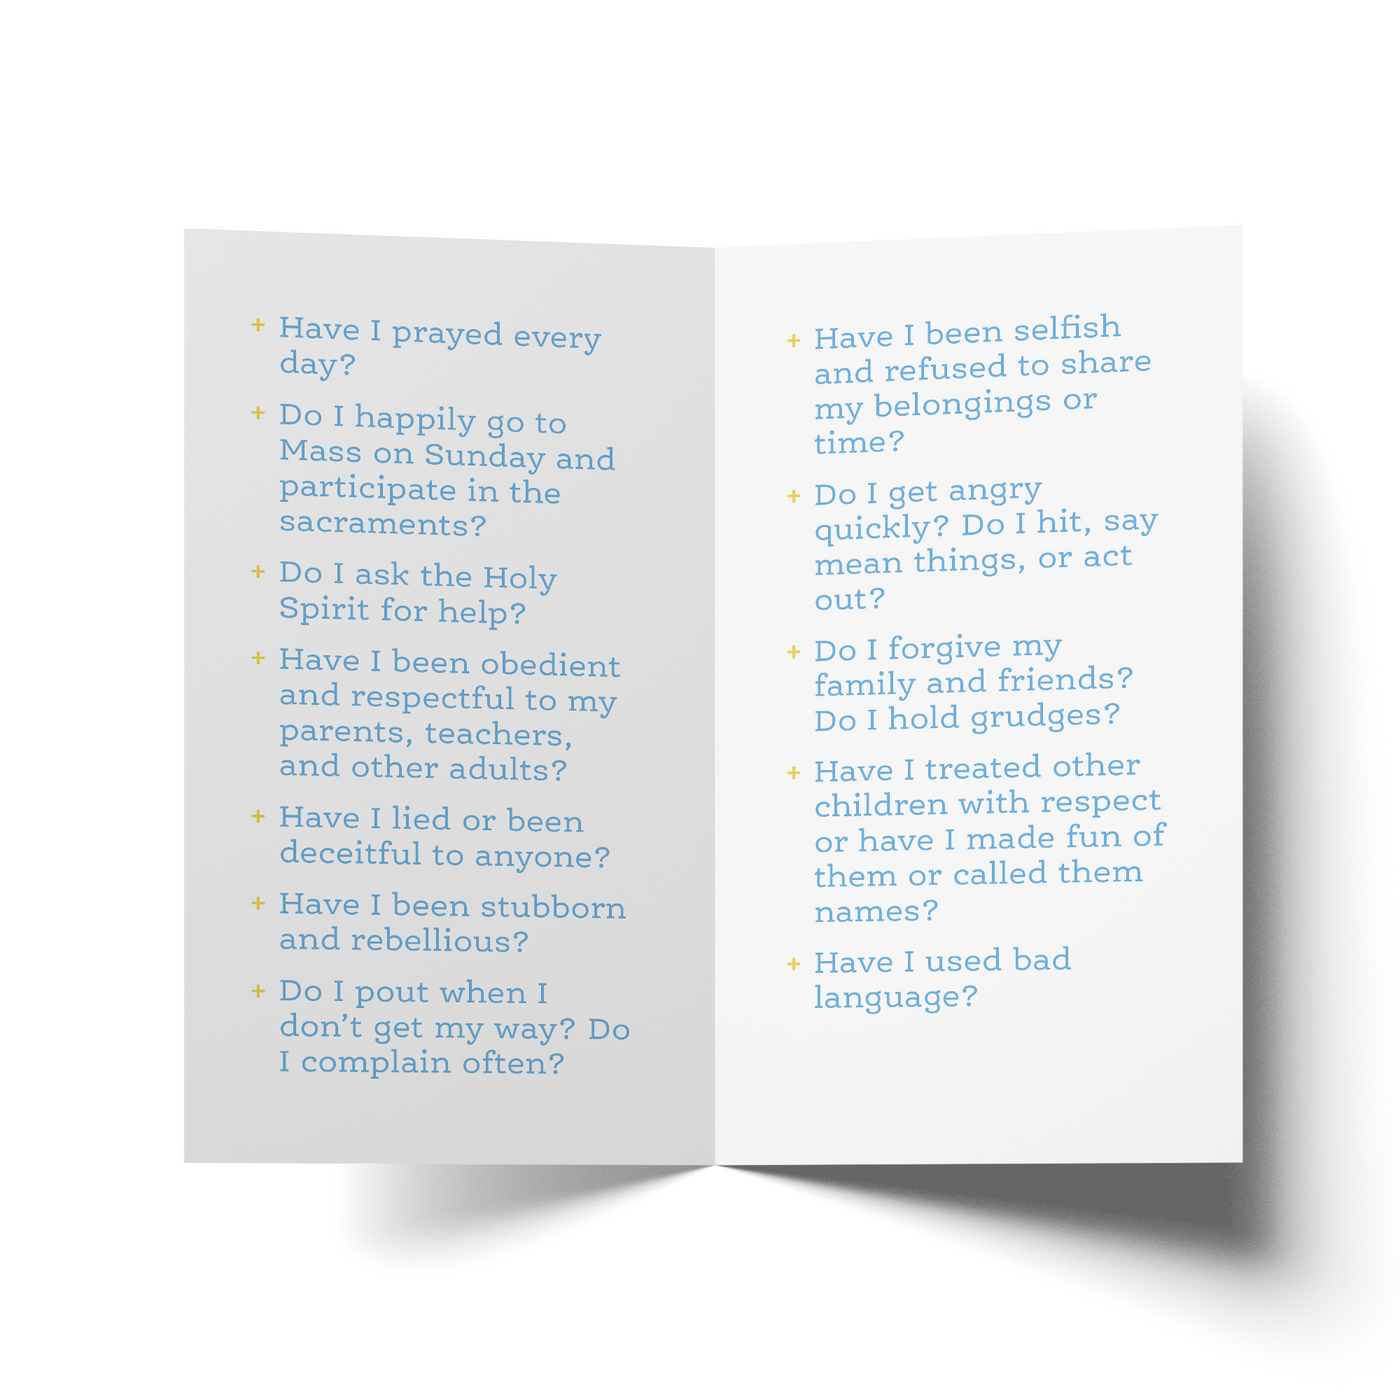 + Have I prayed every
day?
+ Do I happily go to
Mass on Sunday and
participate in the
sacraments?
+ Do I ask the Holy
Spirit for help?
+ Have I been obedient
and respectful to my
parents, teachers,
and other adults?
+ Have I lied or been
deceitful to anyone?
+ Have I been stubborn
and rebellious?
+ Do I pout when I
don’t get my way? Do
I complain often?
+ Have I been selfish
and refused to share
my belongings or
time?
+ Do I get angry
quickly? Do I hit, say
mean things, or act
out?
+ Do I forgive my
family and friends?
Do I hold grudges?
+ Have I treated other
children with respect
or have I made fun of
them or called them
names?
+ Have I used bad
language?